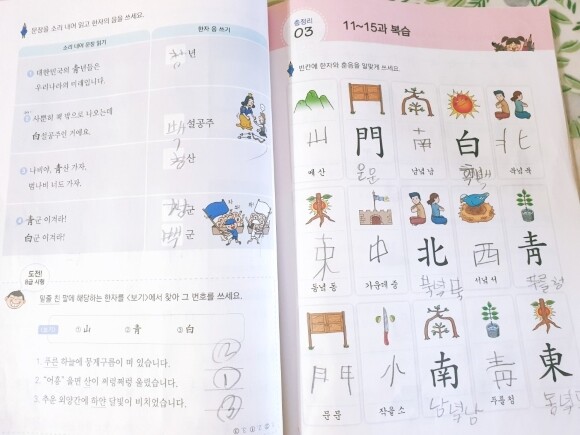 문장을 소리 내어 읽고 한자의 음을 쓰세요.
소리 내어 문장 읽기
한자 음 쓰기
1 대한민국의 靑년들은
우리나라의 미래입니다.
청년
2 사뿐히 책 밖으로 나오는데
白설공주인 거예요.
백설공주
3 나비야, 靑산 가자.
범나비 너도 가자.
청산
4 靑군 이겨라!
白군 이겨라!
청군
백군
도전!
8급 시험
밑줄 친 말에 해당하는 한자를 <보기>에서 찾아 그 번호를 쓰세요.
보기
① 山 ② 靑 ③ 白
1. 푸른 하늘에 뭉게구름이 떠 있습니다.
②
2. "어흥" 울면 산이 쩌렁쩌렁 울렸습니다.
①
3. 추운 외양간에 하얀 달빛이 비치었습니다.
③
총정리
03
11~15과 복습
빈칸에 한자와 훈음을 알맞게 쓰세요.
山 門 南 白 北
메 산 문 문 남녘 남 흰 백 북녘 북
東 中 北 西 靑
동녘 동 가운데 중 북녘 북 서녘 서 푸를 청
門 小 南 靑 東
문 문 작을 소 남녘 남 푸를 청 동녘